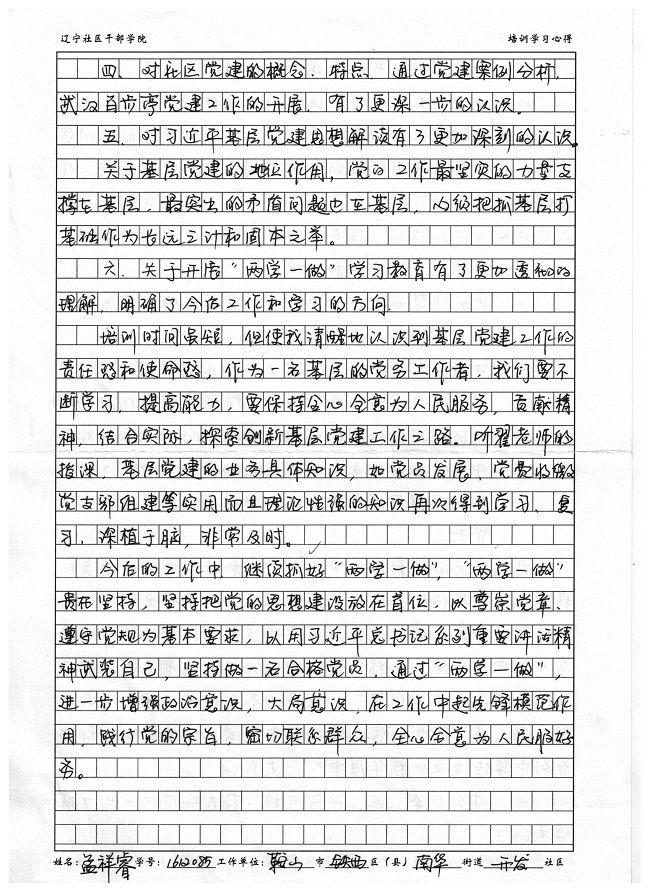 辽宁社区干部学院 培训学习心得
四、对社区党建的概念、特点、通过党建案例分析,
武汉百步亭党建工作的开展,有了更深一步的认识。
五、对习近平基层党建思想解读有了更加深刻的认识。
关于基层党建的地位作用,党的工作最坚实的力量支
撑在基层,最突出的矛盾问题也在基层,必须把抓基层打
基础作为长远之计和固本之举。
六、关于开展“两学一做”学习教育有了更加透彻的
理解,明确了今后工作和学习的方向。
培训时间虽短,但使我清晰地认识到基层党建工作的
责任感和使命感,作为一名基层的党务工作者,我们要不
断学习,提高能力,要保持全心全意为人民服务,贡献精
神,结合实际,探索创新基层党建工作之路。听翟老师的
授课,基层党建的业务具体知识,如党员发展、党费收缴
党支部组建等实用而且理论性强的知识再次得到学习、复
习,深植于脑,非常及时。
今后的工作中,继续抓好“两学一做”,“两学一做”
贵在坚持,坚持把党的思想建设放在首位,以尊崇党章、
遵守党规为基本要求,以用习近平总书记系列重要讲话精
神武装自己,坚持做一名合格党员,通过“两学一做”,
进一步增强政治意识,大局意识,在工作中起先锋模范作
用,践行党的宗旨,密切联系群众,全心全意为人民服好
务。
姓名:孟祥睿 学号:1612085 工作单位:鞍山 市 铁西 区(县) 南华 街道 开发 社区